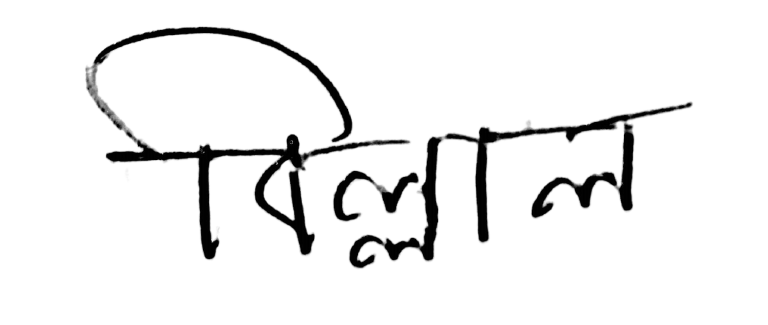 বিল্লাল